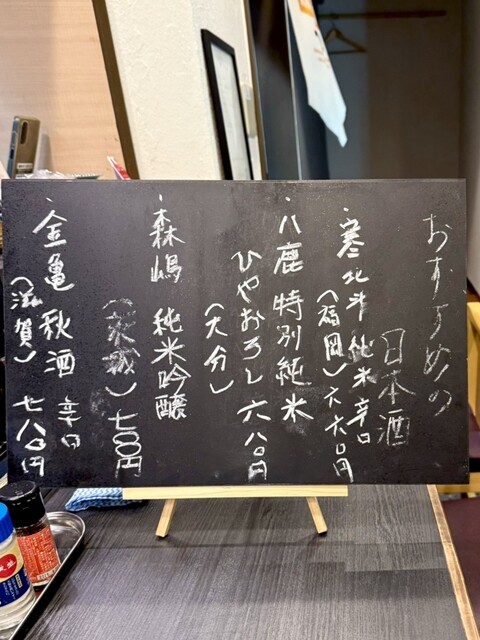 おすすめの
日本酒
・寒北斗 純米辛口
(福岡) 六六〇円
・八鹿 特別純米
ひやおろし 六八〇円
(大分)
・森嶋 純米吟醸
(茨城) 七〇〇円
・金亀 秋酒 辛口
(滋賀) 七八〇円